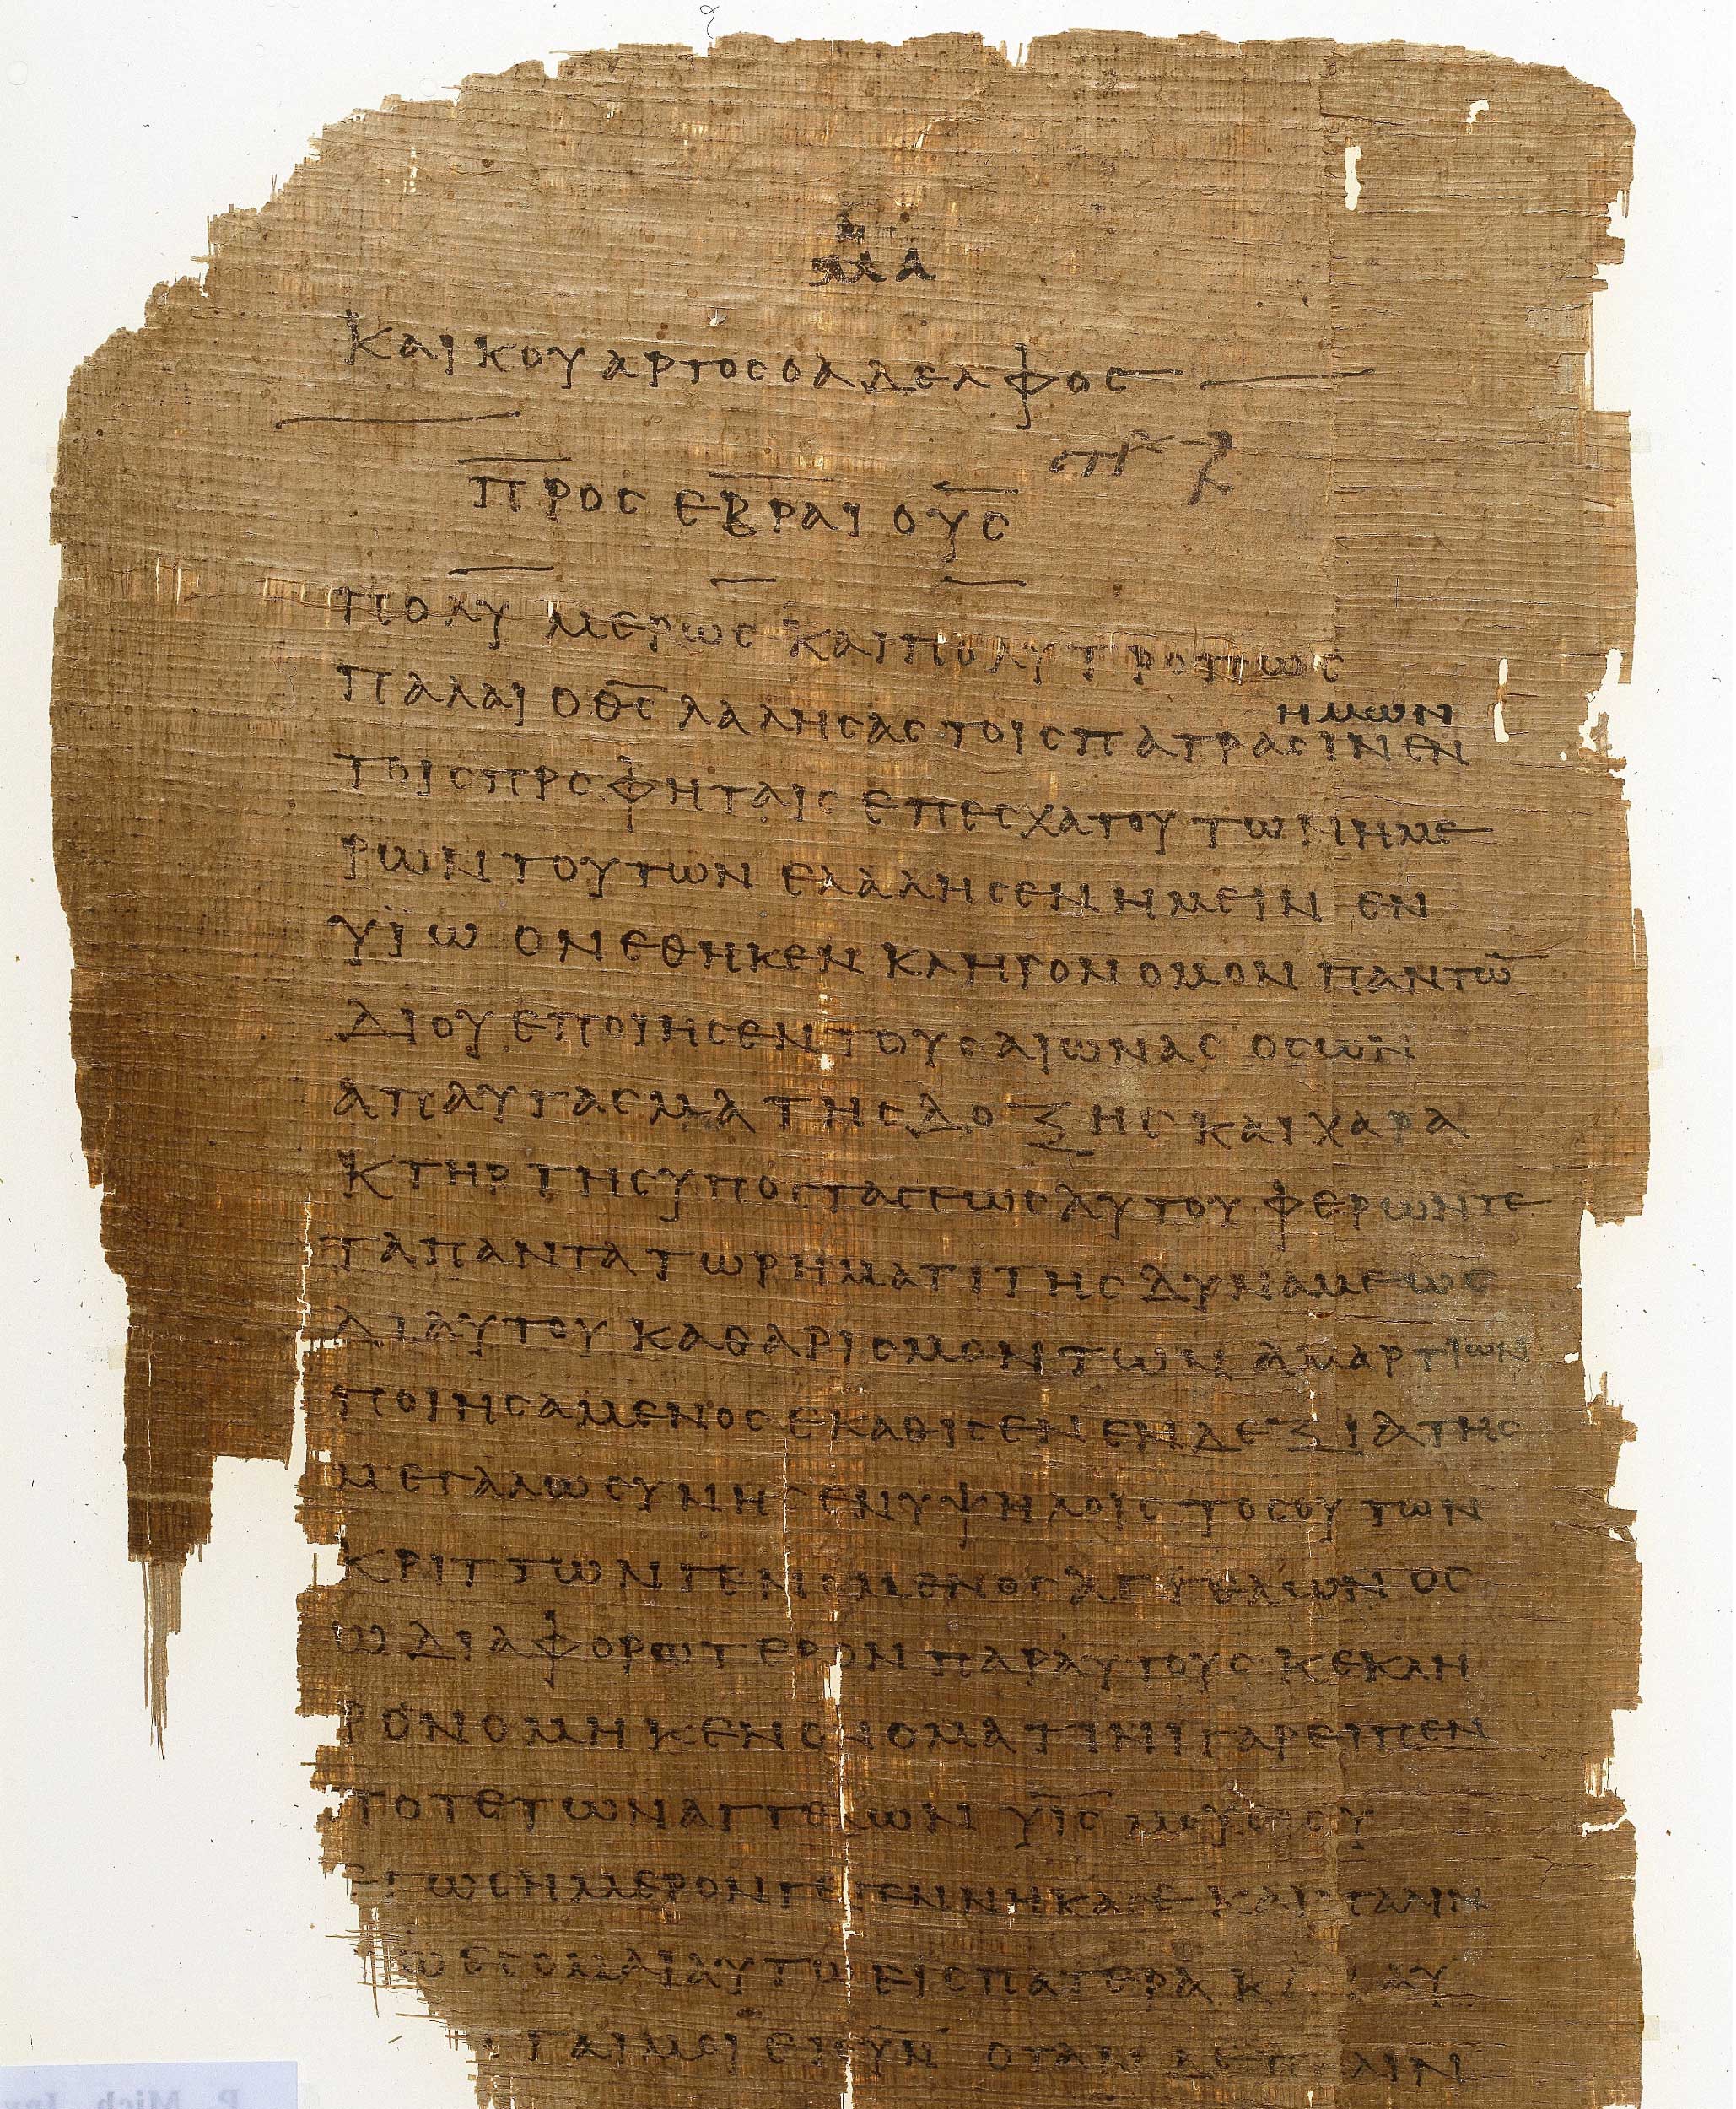 ΜΑ
ΚΑΙ ΚΟΥΑΡΤΟС Ο ΑΔΕΛΦΟС
ΠΡΟС ΕΒΡΑΙΟΥС
ΠΟΛΥΜΕΡΩС ΚΑΙ ΠΟΛΥΤΡΟΠΩС
ΠΑΛΑΙ Ο Θ̅С̅ ΛΑΛΗСΑС ΤΟΙС ΠΑΤΡΑСΙΝ ΗΜΩΝ ΕΝ
ΤΟΙС ΠΡΟΦΗΤΑΙС ΕΠ ΕСΧΑΤΟΥ ΤΩΝ ΗΜΕ
ΡΩΝ ΤΟΥΤΩΝ ΕΛΑΛΗСΕΝ ΗΜΕΙΝ ΕΝ
ΥΪΩ ΟΝ ΕΘΗΚΕΝ ΚΛΗΡΟΝΟΜΟΝ ΠΑΝΤΩ̅
ΔΙ ΟΥ ΕΠΟΙΗСΕΝ ΤΟΥС ΑΙΩΝΑС ΟС ΩΝ
ΑΠΑΥΓΑСΜΑ ΤΗС ΔΟΞΗС ΚΑΙ ΧΑΡΑ
ΚΤΗΡ ΤΗС ΥΠΟСΤΑСΕΩС ΑΥΤΟΥ ΦΕΡΩΝ ΤΕ
ΤΑ ΠΑΝΤΑ ΤΩ ΡΗΜΑΤΙ ΤΗС ΔΥΝΑΜΕΩС
ΔΙ ΑΥΤΟΥ ΚΑΘΑΡΙСΜΟΝ ΤΩΝ ΑΜΑΡΤΙΩΝ
ΠΟΙΗСΑΜΕΝΟС ΕΚΑΘΙСΕΝ ΕΝ ΔΕΞΙΑ ΤΗС
ΜΕΓΑΛΩСΥΝΗС ΕΝ ΥΨΗΛΟΙС ΤΟСΟΥΤΩΝ
ΚΡΙΤΤΩΝ ΓΕΝΟΜΕΝΟС ΑΓΓΕΛΩΝ ΟС
Ω ΔΙΑΦΟΡΩΤΕΡΟΝ ΠΑΡ ΑΥΤΟΥС ΚΕΚΛΗ
ΡΟΝΟΜΗΚΕΝ ΟΝΟΜΑ ΤΙΝΙ ΓΑΡ ΕΙΠΕΝ
ΠΟΤΕ ΤΩΝ ΑΓΓΕΛΩΝ Υ̅Ι̅С̅ ΜΟΥ СΥ
ΕΓΩ СΗΜΕΡΟΝ ΓΕΓΕΝΝΗΚΑ СΕ ΚΑΙ ΠΑΛΙΝ
ΕСΟΜΑΙ ΑΥΤΩ ΕΙС ΠΑΤΕΡΑ Κ ΑΥ
ΤΑΙ ΜΟΙ ΕΙС Υ̅Ν̅ ΟΤΑΝ ΔΕ ΠΑΛΙΝ